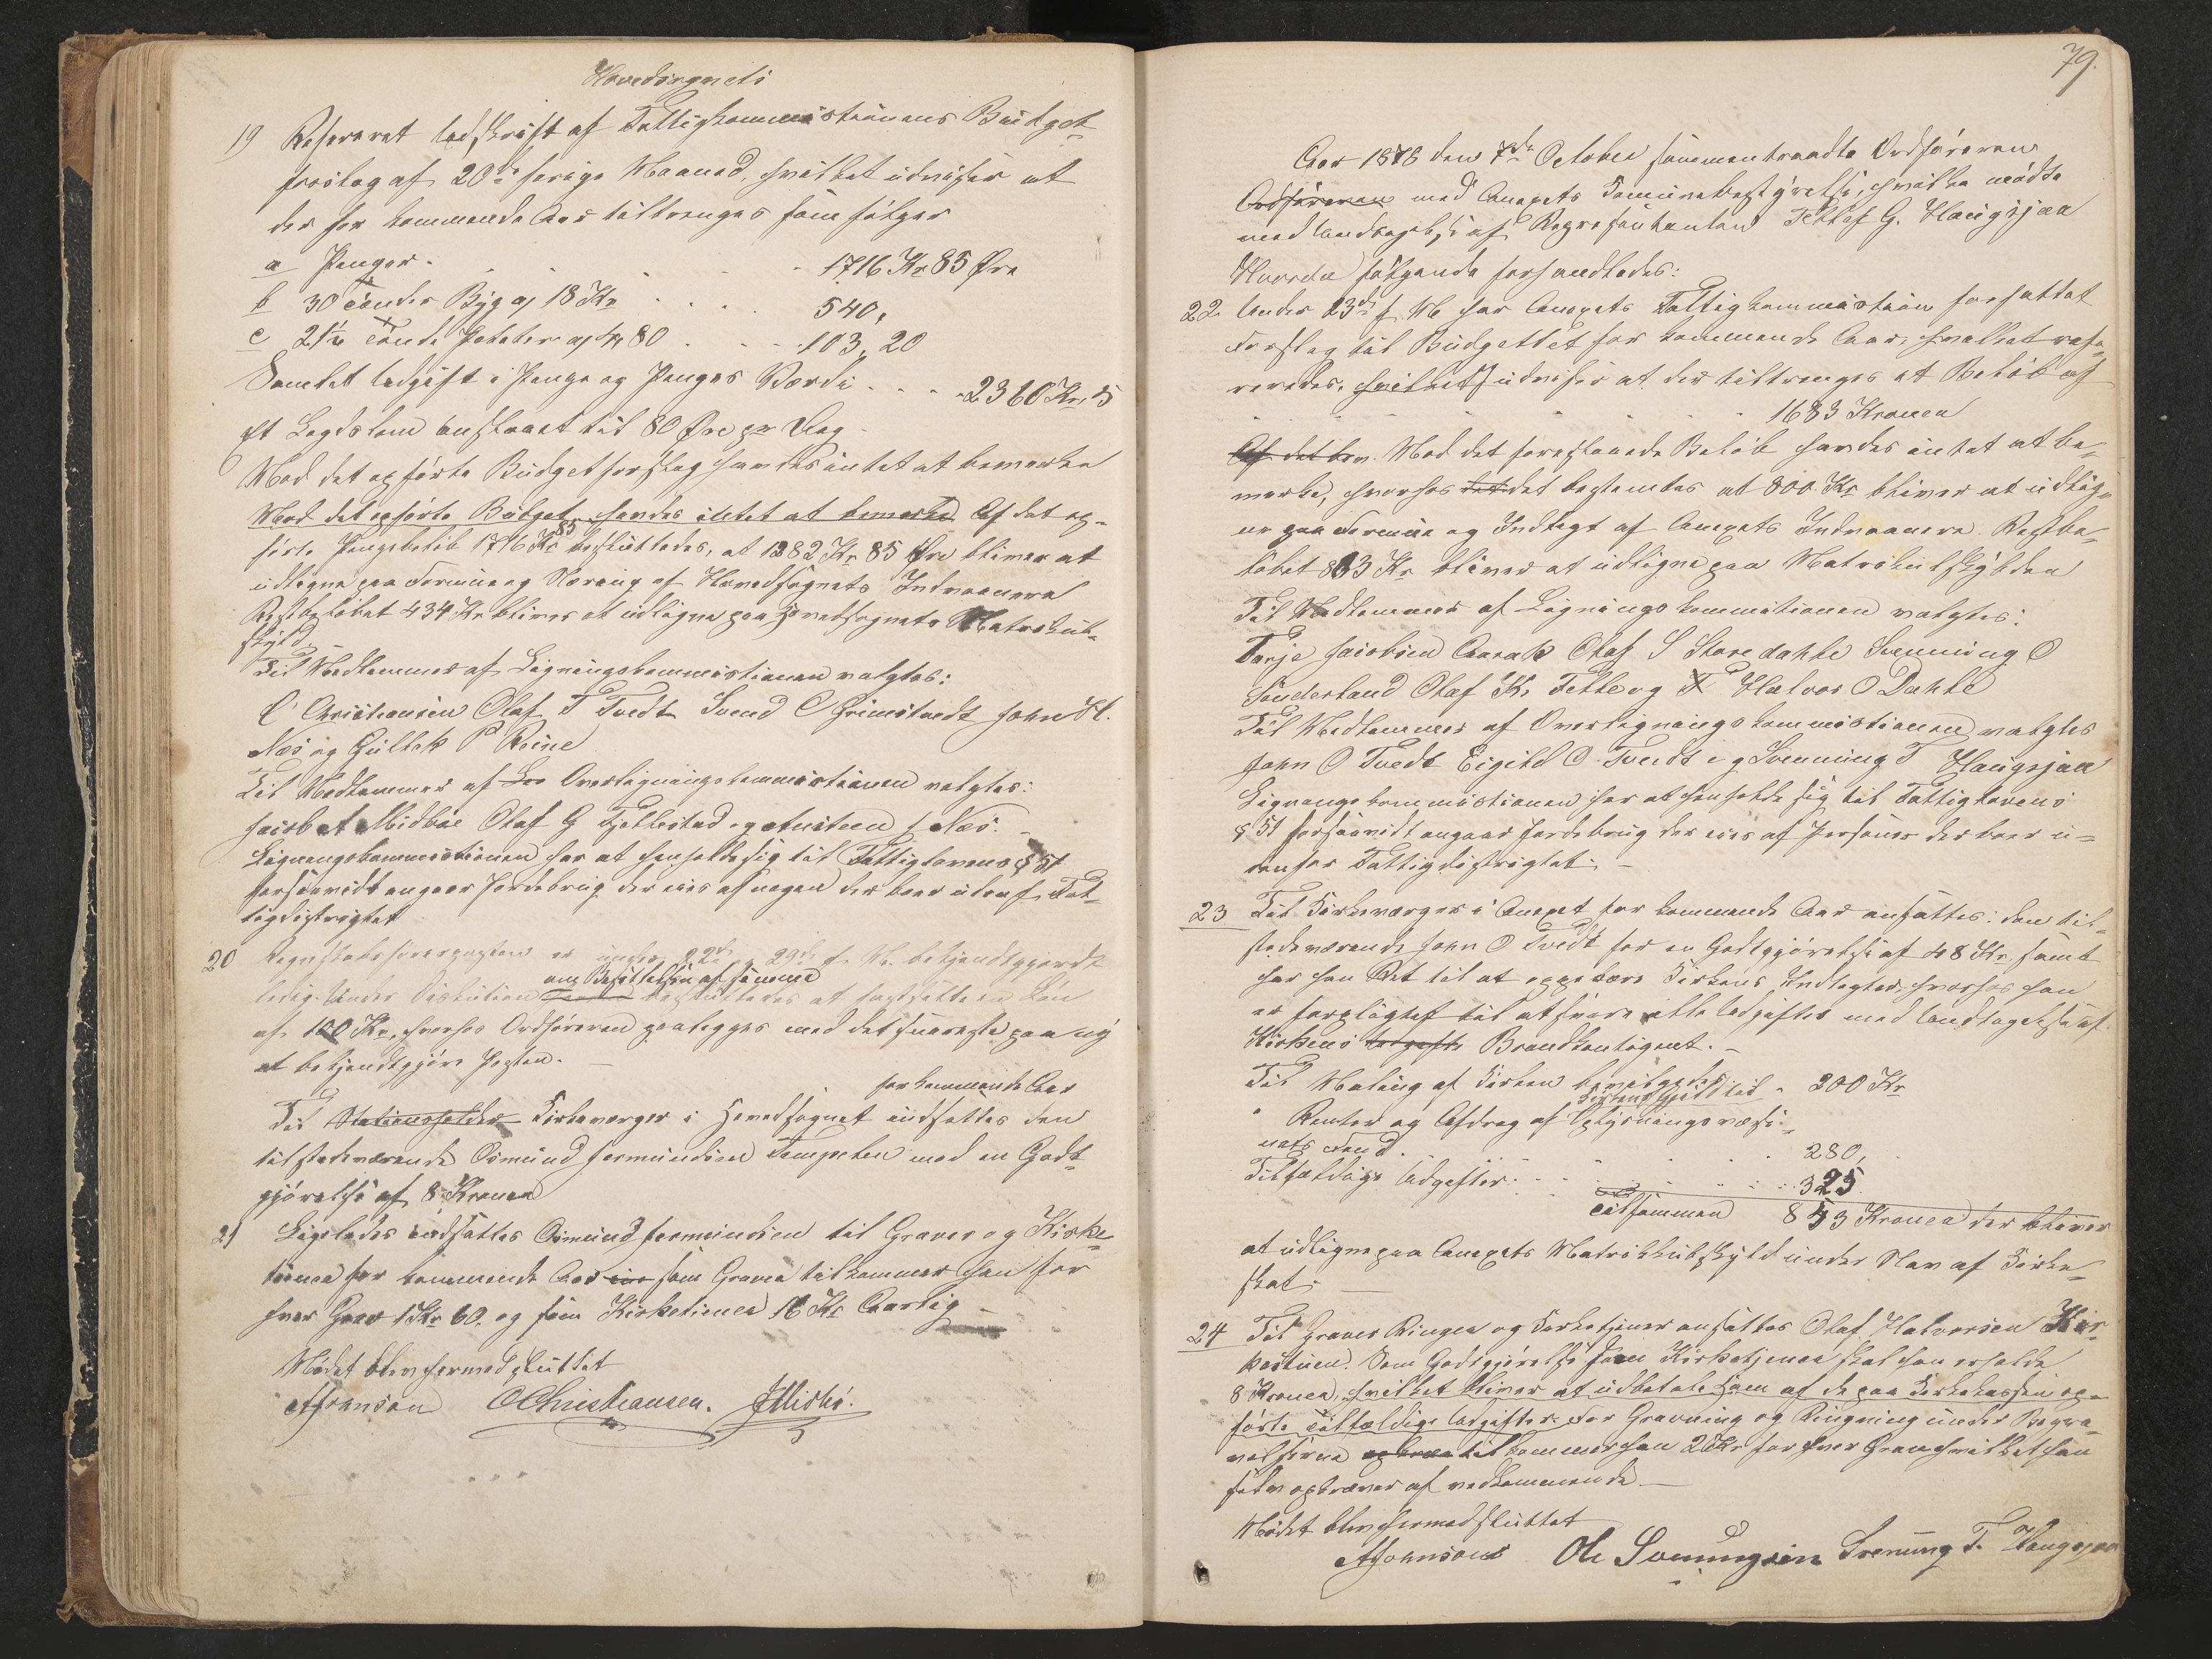 Hovedsognets
19 Refereret Udskrift af Fattigkommistionens Budget
forslag af 20de forige Maaned, hvilket udviser at
der for kommende Aar tiltrenges som følger
a Penger 1716 Kr 85 Øre
b 30 Tønder Byg a 18 Kr 540,
c 21½ Tønde Poteter a 4,80 103,20
Samlet Udgift i Penge og Penges Værdi 2360 Kr, 5
Et Lægdslem anslaaet til 80 Øre pr Dag
Mod det opførte Budgetforslag havdes intet at bemerke
Mod det opførte Budget havdes intet at bemerke Af det op-
førte Pengebeløb 1716 Kr 85 besluttedes, at 1282 Kr 85 Øre bliver at
udligne paa Formue og Næring af Hovedsognets Indvaanere
Restbeløbet 434 Kr bliver at udligne paa Hovedsognets Matrikul-
skyld
Til Medlemmer af Ligningskommistionen valgtes:
C Christiansen Olaf T Tvedt Svend O Grimstvedt John H.
Næs og Gullek P Reine
Til Medlemmer af Overligningskommistionen valgtes:
Jacob A Midbøe Olaf G Fjellestad og Austeen J Næs.
Ligningskommistionen har at henholde sig til Fattiglovens § 51
forsaavidt angaar Jordebrug der eies af nogen der boer udenf. Fat-
tigdistrigtet
20 Regnskabsførerposten er under 22de og 29de f. M. bekjendtgjordt
ledig. Under Diskution om Besettelsen af samme besluttedes at fastsette en Løn
af 100 Kr, hvorhos Ordføreren paalegges med det snareste paa ny
at bekjendtgjøre Posten.
for kommende Aar
Til Stationsholder Kirkeverger i Hovedsognet indsattes den
tilstedeværende Osmund Jermundsen Tempelen med en Godt-
gjørelse af 8 Kroner
21 Ligeledes indsattes Osmund Jermundsen til Graver og Kirke-
tiener for kommende Aar som Graver tilkommer han for
hver Grav 1 Kr 60. og som Kirketiener 16 Kr Aarlig
Mødet blev hermed sluttet
AJohnson OChristiansen. JMidbö.
79.
Aar 1878 den 7de October sammentraadte Ordføreren
Ordføreren med Anexets Komunebestyrelse, hvilke mødte
med Undtagelse af Representanten Tellef G. Haugsjaa
Hvorda følgende forhandledes:
22 Under 23de f. M har Anexets Fattigkommistion forfattet
Forslag til Budgettet for kommende Aar, hvilket refe-
reredes, hvilket udviser at der tiltrenges et Beløb af
1683 Kroner
Af det bem. Mod det foreslaaede Beløb havdes intet at be-
merke, hvorhos det bestemtes at 800 Kr bliver at udlig-
ne paa Formue og Indtægt af Anexets Indvaanere. Restbe-
løbet 883 Kr bliver at udligne paa Matrikulskylden
Til Medlemmer af Ligningskommitionen valgtes:
Tarje Jacobsen Aarak Olaf S Storedahle Svenning O
Sunderland Olaf Kr. Felle og Halvor O Dahle
Til Medlemmer af Overligningskommistionen valgtes
John O Tvedt Eigild O Tveidt og Svenning T Haugsjaa
Ligningskommistionen har at henholde sig til Fattiglovens
§ 51 forsaavidt angaar Jordebrug der eies af Personer der boer u-
denfor Fattigdistrigtet.
23 Til Kirkeverger i Anexet for kommende Aar ansattes: den til-
stedeværende John O Tvedt for en Godtgjørelse af 48 Kr samt
har han Ret til at oppebære Kirkens Indtegter, hvorhos han
er forpligtet til at svare alle Udgifter med Undtagelse af
Kirkens Udgift Brandkontigent.
Til Maling af Kirken bevilgedes 200 Kr
Kirkens Gjeld til
" Renter og Afdrag af Oplysningsvæse-
nets Fond 280,
Tilfeldige Udgifter 325
Tilsammen 853 Kroner der bliver
at udligne paa Anexets Matrikkulskyld under Navn af Kirke-
skat.
24 Til Graver Ringer og Kirketjener ansattes Olaf Halvorsen Kir-
kestuen. Som Godtgjørelse som Kirketjener skal han erholde
8 Kroner, hvilket bliver at udbetale ham af de paa Kirkekassen op-
førte tilfældige Udgifter. For Gravning og Ringning under Begra-
velserne tilkommer han 2 Kr for hver Grav hvilket han
selv opkræver af vedkommende
Mødet blev hermed sluttet
AJohnson Ole Svenungsen Svenung T. Haugsjaa